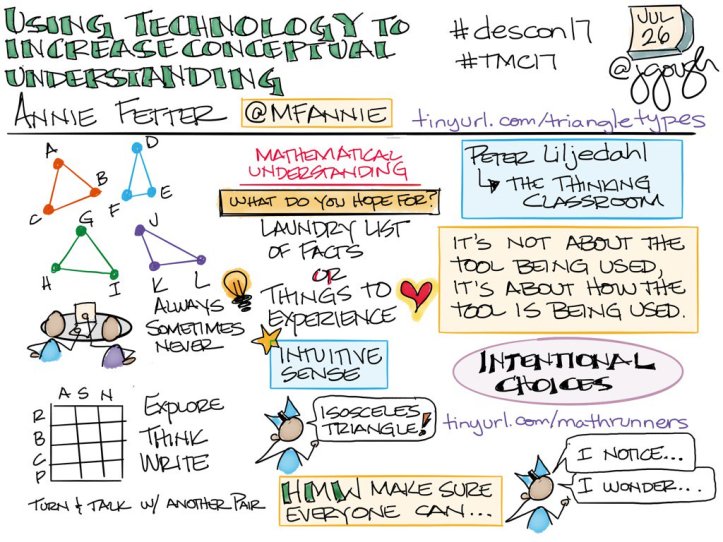 USING TECHNOLOGY TO
INCREASE CONCEPTUAL
UNDERSTANDING
#descon17
#TMC17
JUL
26
@jgough
ANNIE FETTER @MFANNIE
tinyurl.com/triangletypes
A
B
C
D
E
F
G
H
I
J
K
L
ALWAYS
SOMETIMES
NEVER
A S N
R
B
G
P
EXPLORE
THINK
WRITE
TURN & TALK W/ ANOTHER PAIR
MATHEMATICAL
UNDERSTANDING
WHAT DO YOU HOPE FOR?
LAUNDRY LIST
OF FACTS
OR
THINGS TO
EXPERIENCE
INTUITIVE
SENSE
ISOSCELES
TRIANGLE!
HMW MAKE SURE
EVERYONE CAN...
PETER Liljedahl
THE THINKING
CLASSROOM
IT'S NOT ABOUT THE
TOOL BEING USED,
IT'S ABOUT HOW THE
TOOL IS BEING USED.
INTENTIONAL
CHOICES
tinyurl.com/mathrunners
I NOTICE...
I WONDER...